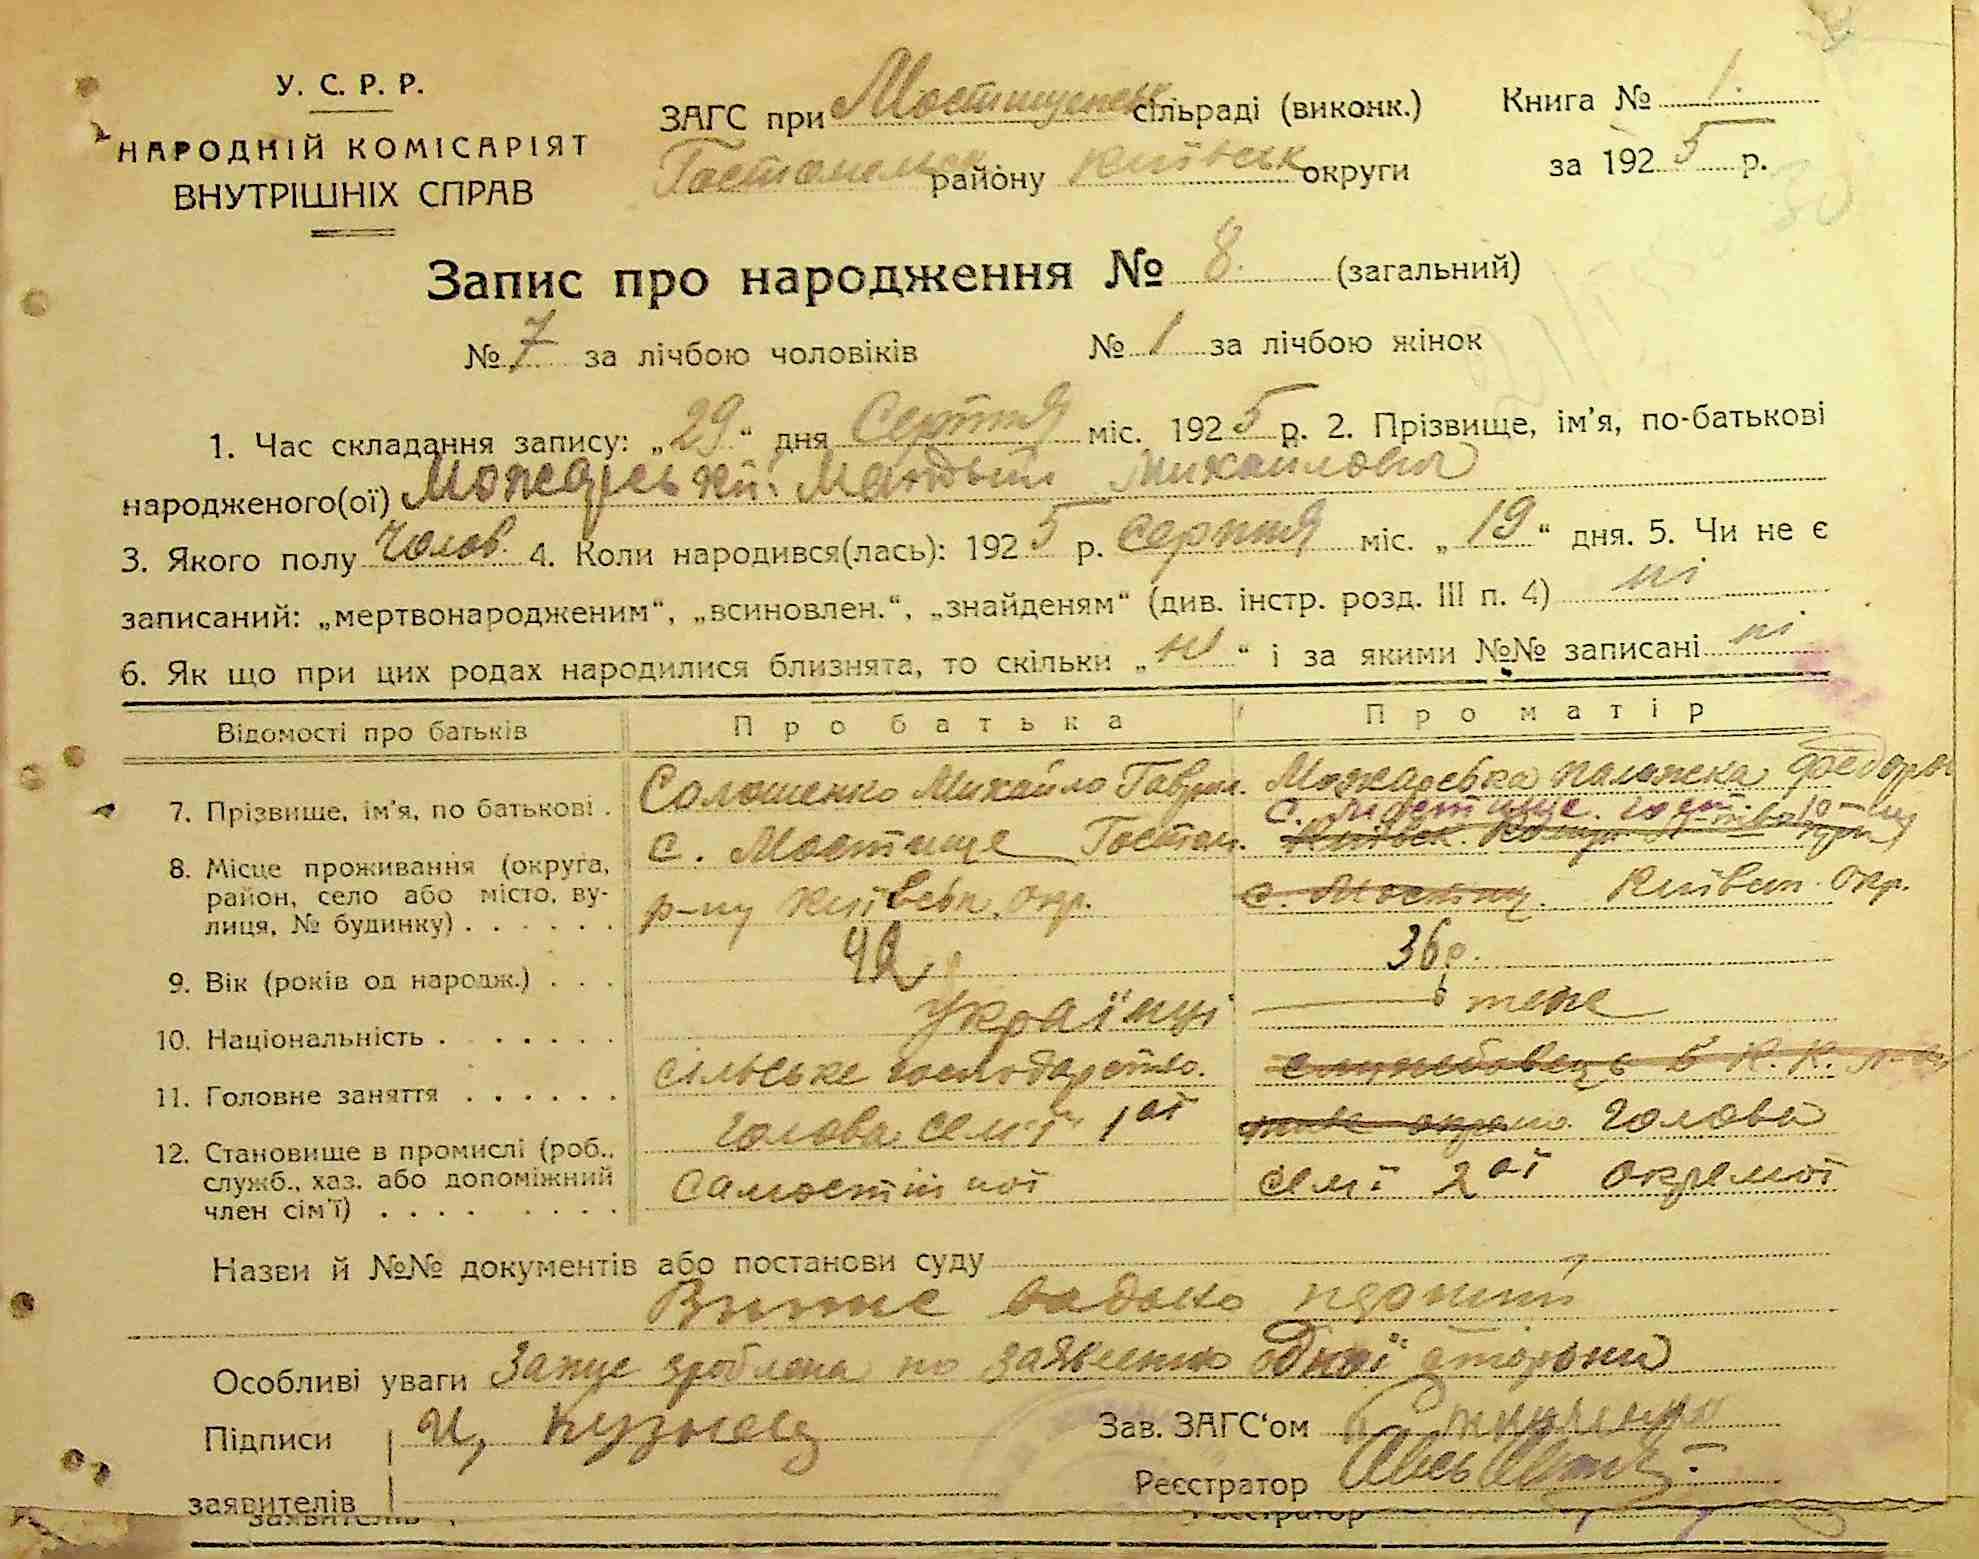 У. С. Р. Р.
НАРОДНІЙ КОМІСАРІЯТ
ВНУТРІШНІХ СПРАВ
ЗАГС при Мостищенськ сільраді (виконк.)
Гостомельск району Київськ округи
Книга № 1.
за 1925 р.
Запис про народження № 8. (загальний)
№ 7 за лічбою чоловіків № 1 за лічбою жінок
1. Час складання запису: „29“ дня Серпня міс. 1925 р. 2. Прізвище, ім'я, по-батькові
народженого(ої) Можарський Михайлович
3. Якого полу Чолов. 4. Коли народився(лась): 1925 р. Серпня міс. „19“ дня. 5. Чи не є
записаний: „мертвонародженим“, „всиновлен.“, „знайденям“ (див. інстр. розд. III п. 4) ні
6. Як що при цих родах народилися близнята, то скільки „ні“ і за якими №№ записані ні
Відомості про батьків Про батька Про матір
7. Прізвище, ім'я, по батькові . Солошенко Михайло Гаврил. Можарська Палажка Федоро
8. Місце проживання (округа, район, село або місто, вулиця, № будинку) . . . . . .
с. Мостище Гостом.
р-ну Київськ. окр.
с. Мостище
Київськ. окр.
9. Вік (років од народж.) . . . 42 36 р.
10. Національність . . . . . . . Українці теж
11. Головне заняття . . . . . . сільське господарство.
12. Становище в промислі (роб., служб., хаз. або допоміжний член сім'ї) . . . . . . . . .
голова сем'ї 1ої
самостійної
голова
сем'ї 2ої окремої
Назви й №№ документів або постанови суду
Особливі уваги Запис зроблена по заявленю однеї сторони
Підписи
заявителів
Зав. ЗАГС'ом
Реєстратор
заявителів
Реєстратор